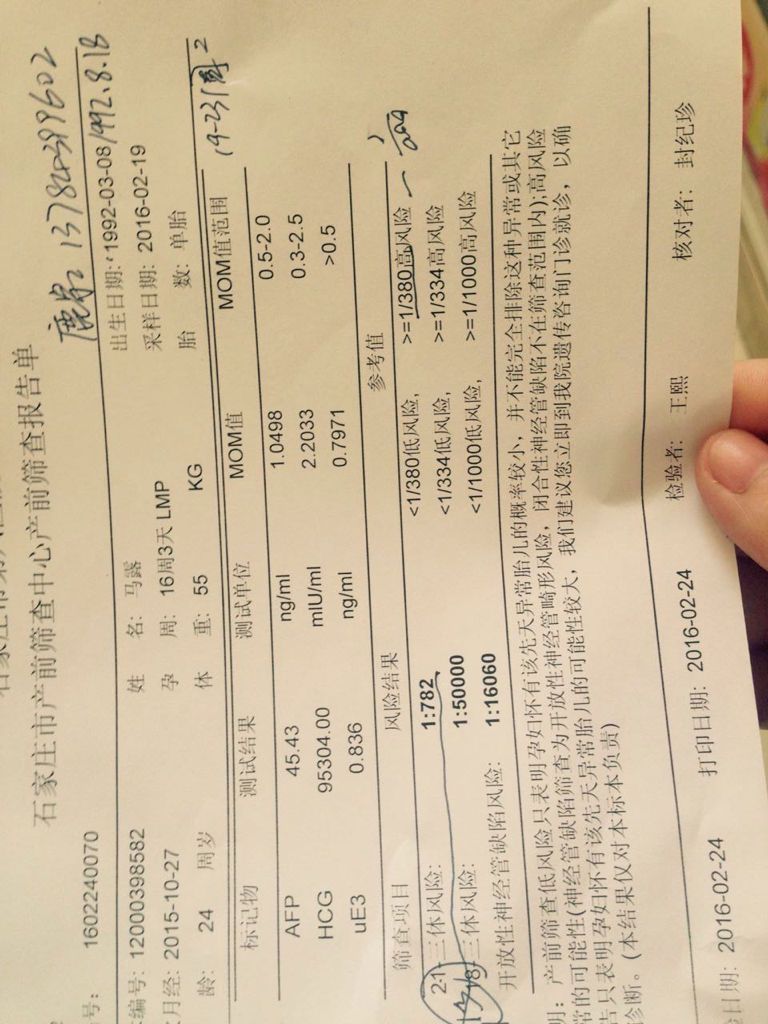 石家庄市产前筛查中心产前筛查报告单
13784399602
号: 1602240070
编号: 12000398582 姓 名: 马露 出生日期: 1992-03-08 1992.8.18
月经: 2015-10-27 孕 周: 16周3天 LMP 采样日期: 2016-02-19
龄: 24 周岁 体 重: 55 KG 胎 数: 单胎
19-23周
标记物 测试结果 测试单位 MOM值 MOM值范围
AFP 45.43 ng/ml 1.0498 0.5-2.0
HCG 95304.00 mIU/ml 2.2033 0.3-2.5
uE3 0.836 ng/ml 0.7971 >0.5
筛查项目 风险结果 参考值
21三体风险: 1:782 <1/380低风险, >=1/380高风险
18三体风险: 1:50000 <1/334低风险, >=1/334高风险
开放性神经管缺陷风险: 1:16060 <1/1000低风险, >=1/1000高风险
明: 产前筛查低风险只表明孕妇怀有该先天异常胎儿的概率较小, 并不能完全排除这种异常或其它
常的可能性(神经管缺陷筛查为开放性神经管畸形风险, 闭合性神经管缺陷不在筛查范围内);高风险
告只表明孕妇怀有该先天异常胎儿的可能性较大, 我们建议您立即到我院遗传咨询门诊就诊, 以确
诊断。(本结果仅对本标本负责)
检验者: 王熙 核对者: 封纪珍
日期: 2016-02-24 打印日期: 2016-02-24